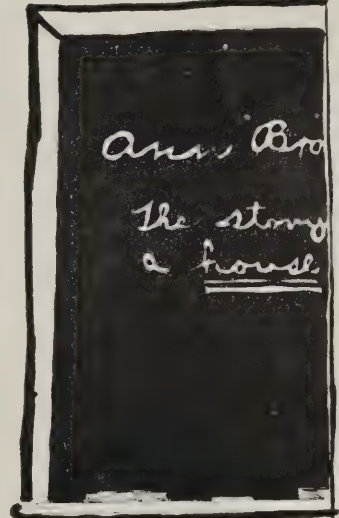 Ann Bro
The story
a house